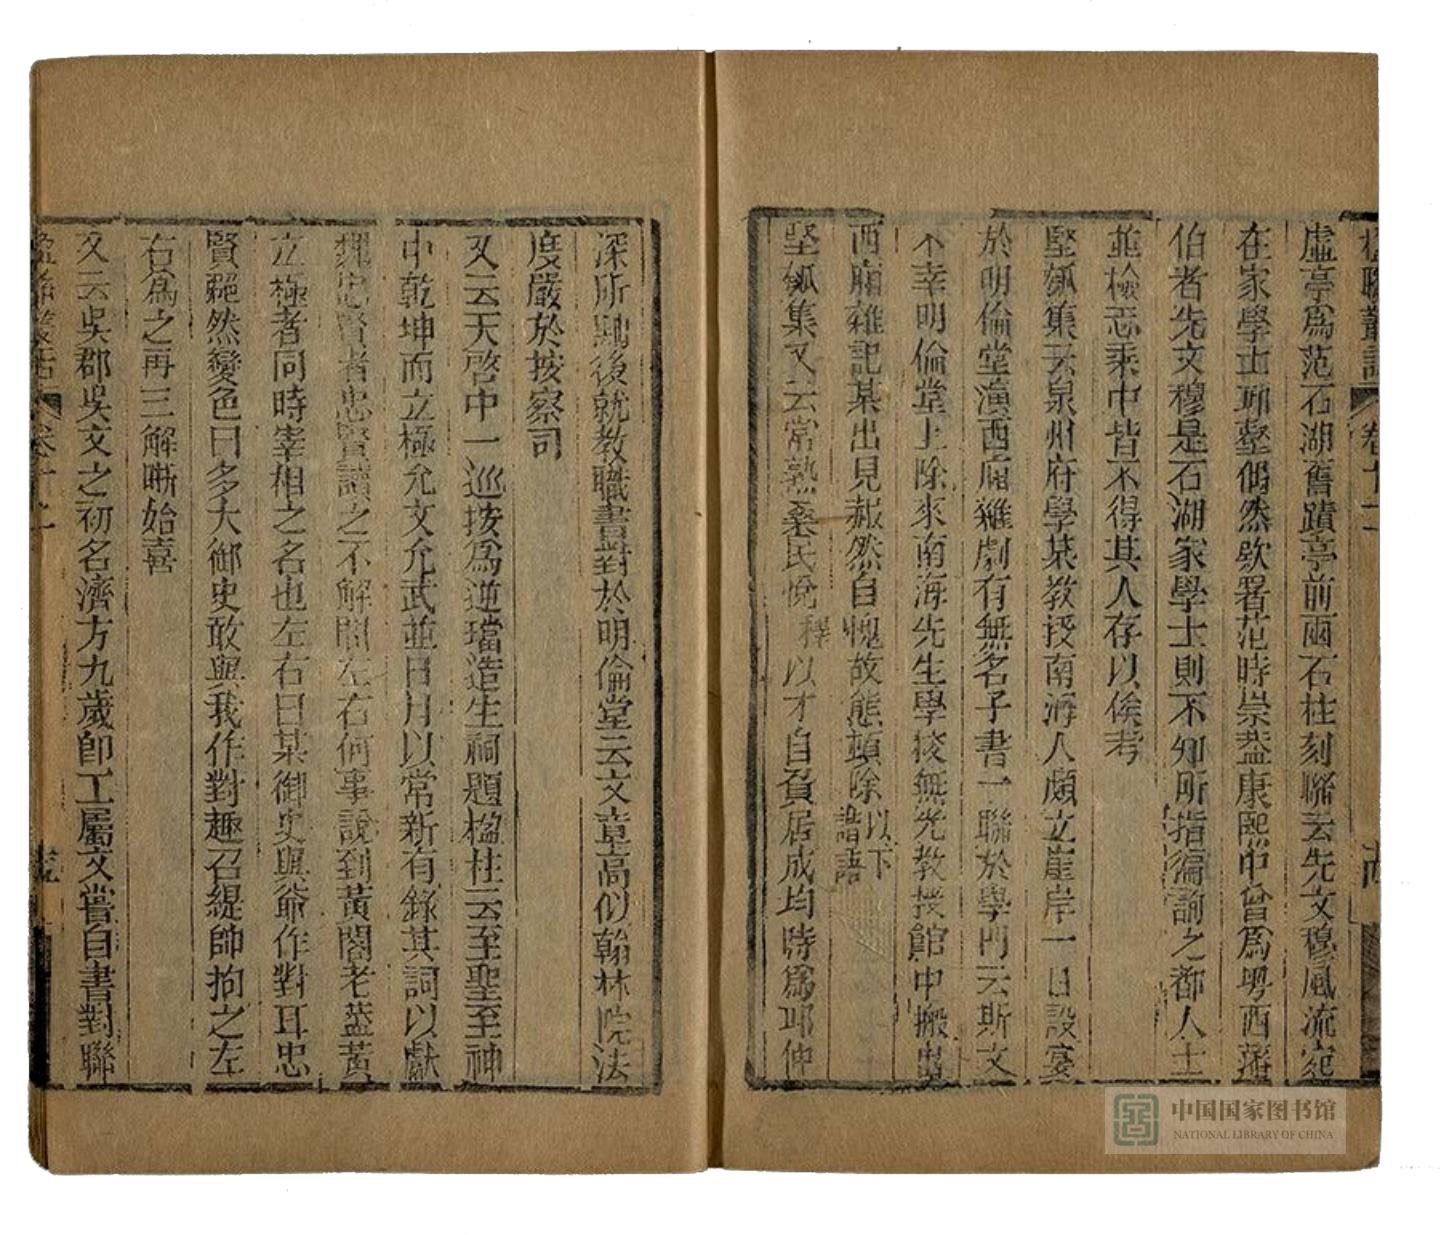 楹聯叢話 卷十二
虛亭爲范石湖舊蹟亭前兩石柱刻聯云先文穆風流宛
在家學士耶蟄偶然欵署范時崇葢康熙中曾爲粤西藩
伯者先文穆是石湖家學士則不知所指徧詢之都人士
並檢志乘中皆不得其人存以俟考
堅瓠集云泉州府學某教授南海人頗立崖岸一日設宴
於明倫堂演西廂雜劇有無名子書一聯於學門云斯文
不幸明倫堂上除來南海先生學挍無光教授館中搬出
西廂雜記某出見赧然自愧故態頓除以下諧語
堅瓠集又云常熟桑民悅 以才自負居成均時爲邱仲
深所黜後就教職書對於明倫堂云文章高似翰林院法
度嚴於按察司
又云天啓中一巡按爲逆璫造生祠題楹柱云至聖至神
中乾坤而立極允文允武並日月以常新有錄其詞以獻
魏忠賢者忠賢讀之不解問左右何事說到黃閣老葢黃
立極者同時宰相之名也左右曰某御史與爺作對耳忠
賢艴然變色曰多大御史敢與我作對趣召緹帥拘之左
右爲之再三解晣始喜
又云吳郡吳文之初名濟方九歲卽工屬文嘗自書對聯
楹聯叢話 卷十二
中国国家图书馆
NATIONAL LIBRARY OF CHINA